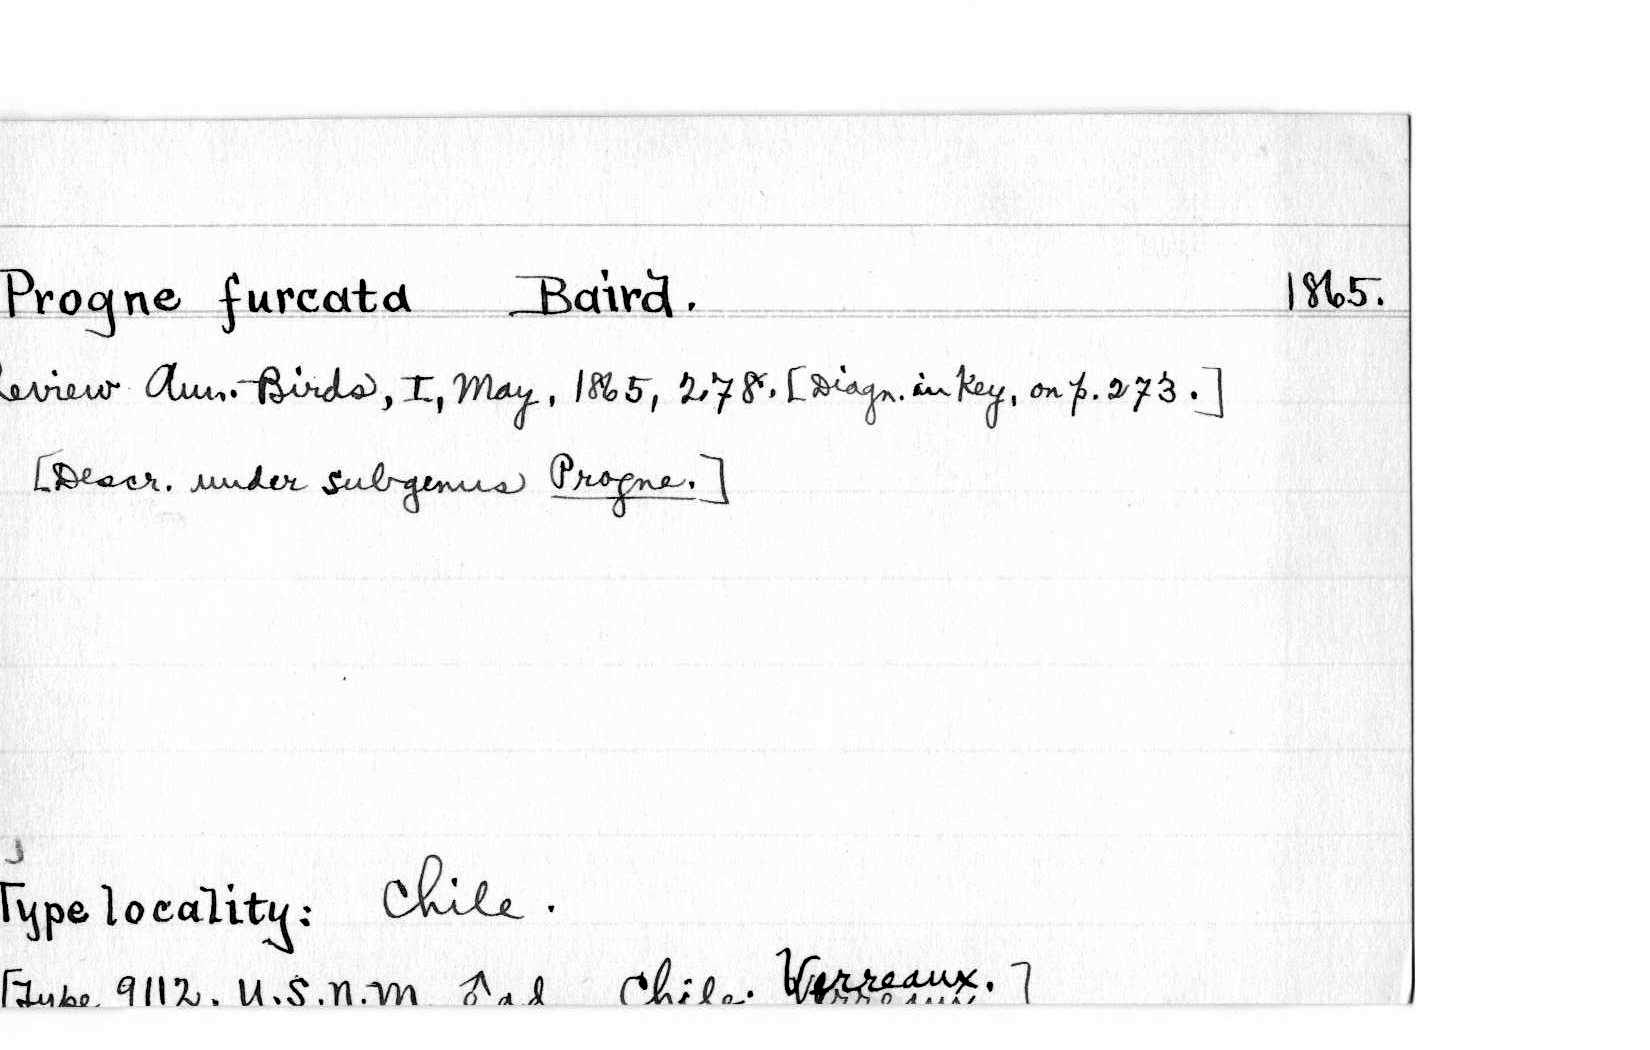 Progne furcata Baird. 1865.
Review Am. Birds, I, May, 1865, 278. [Diagn. in key, on p. 273.]
[Descr. under subgenus Progne.]
Type locality: Chile.
[Type 9112. U.S.N.M. ♂ ad. Chile. Verreaux.]